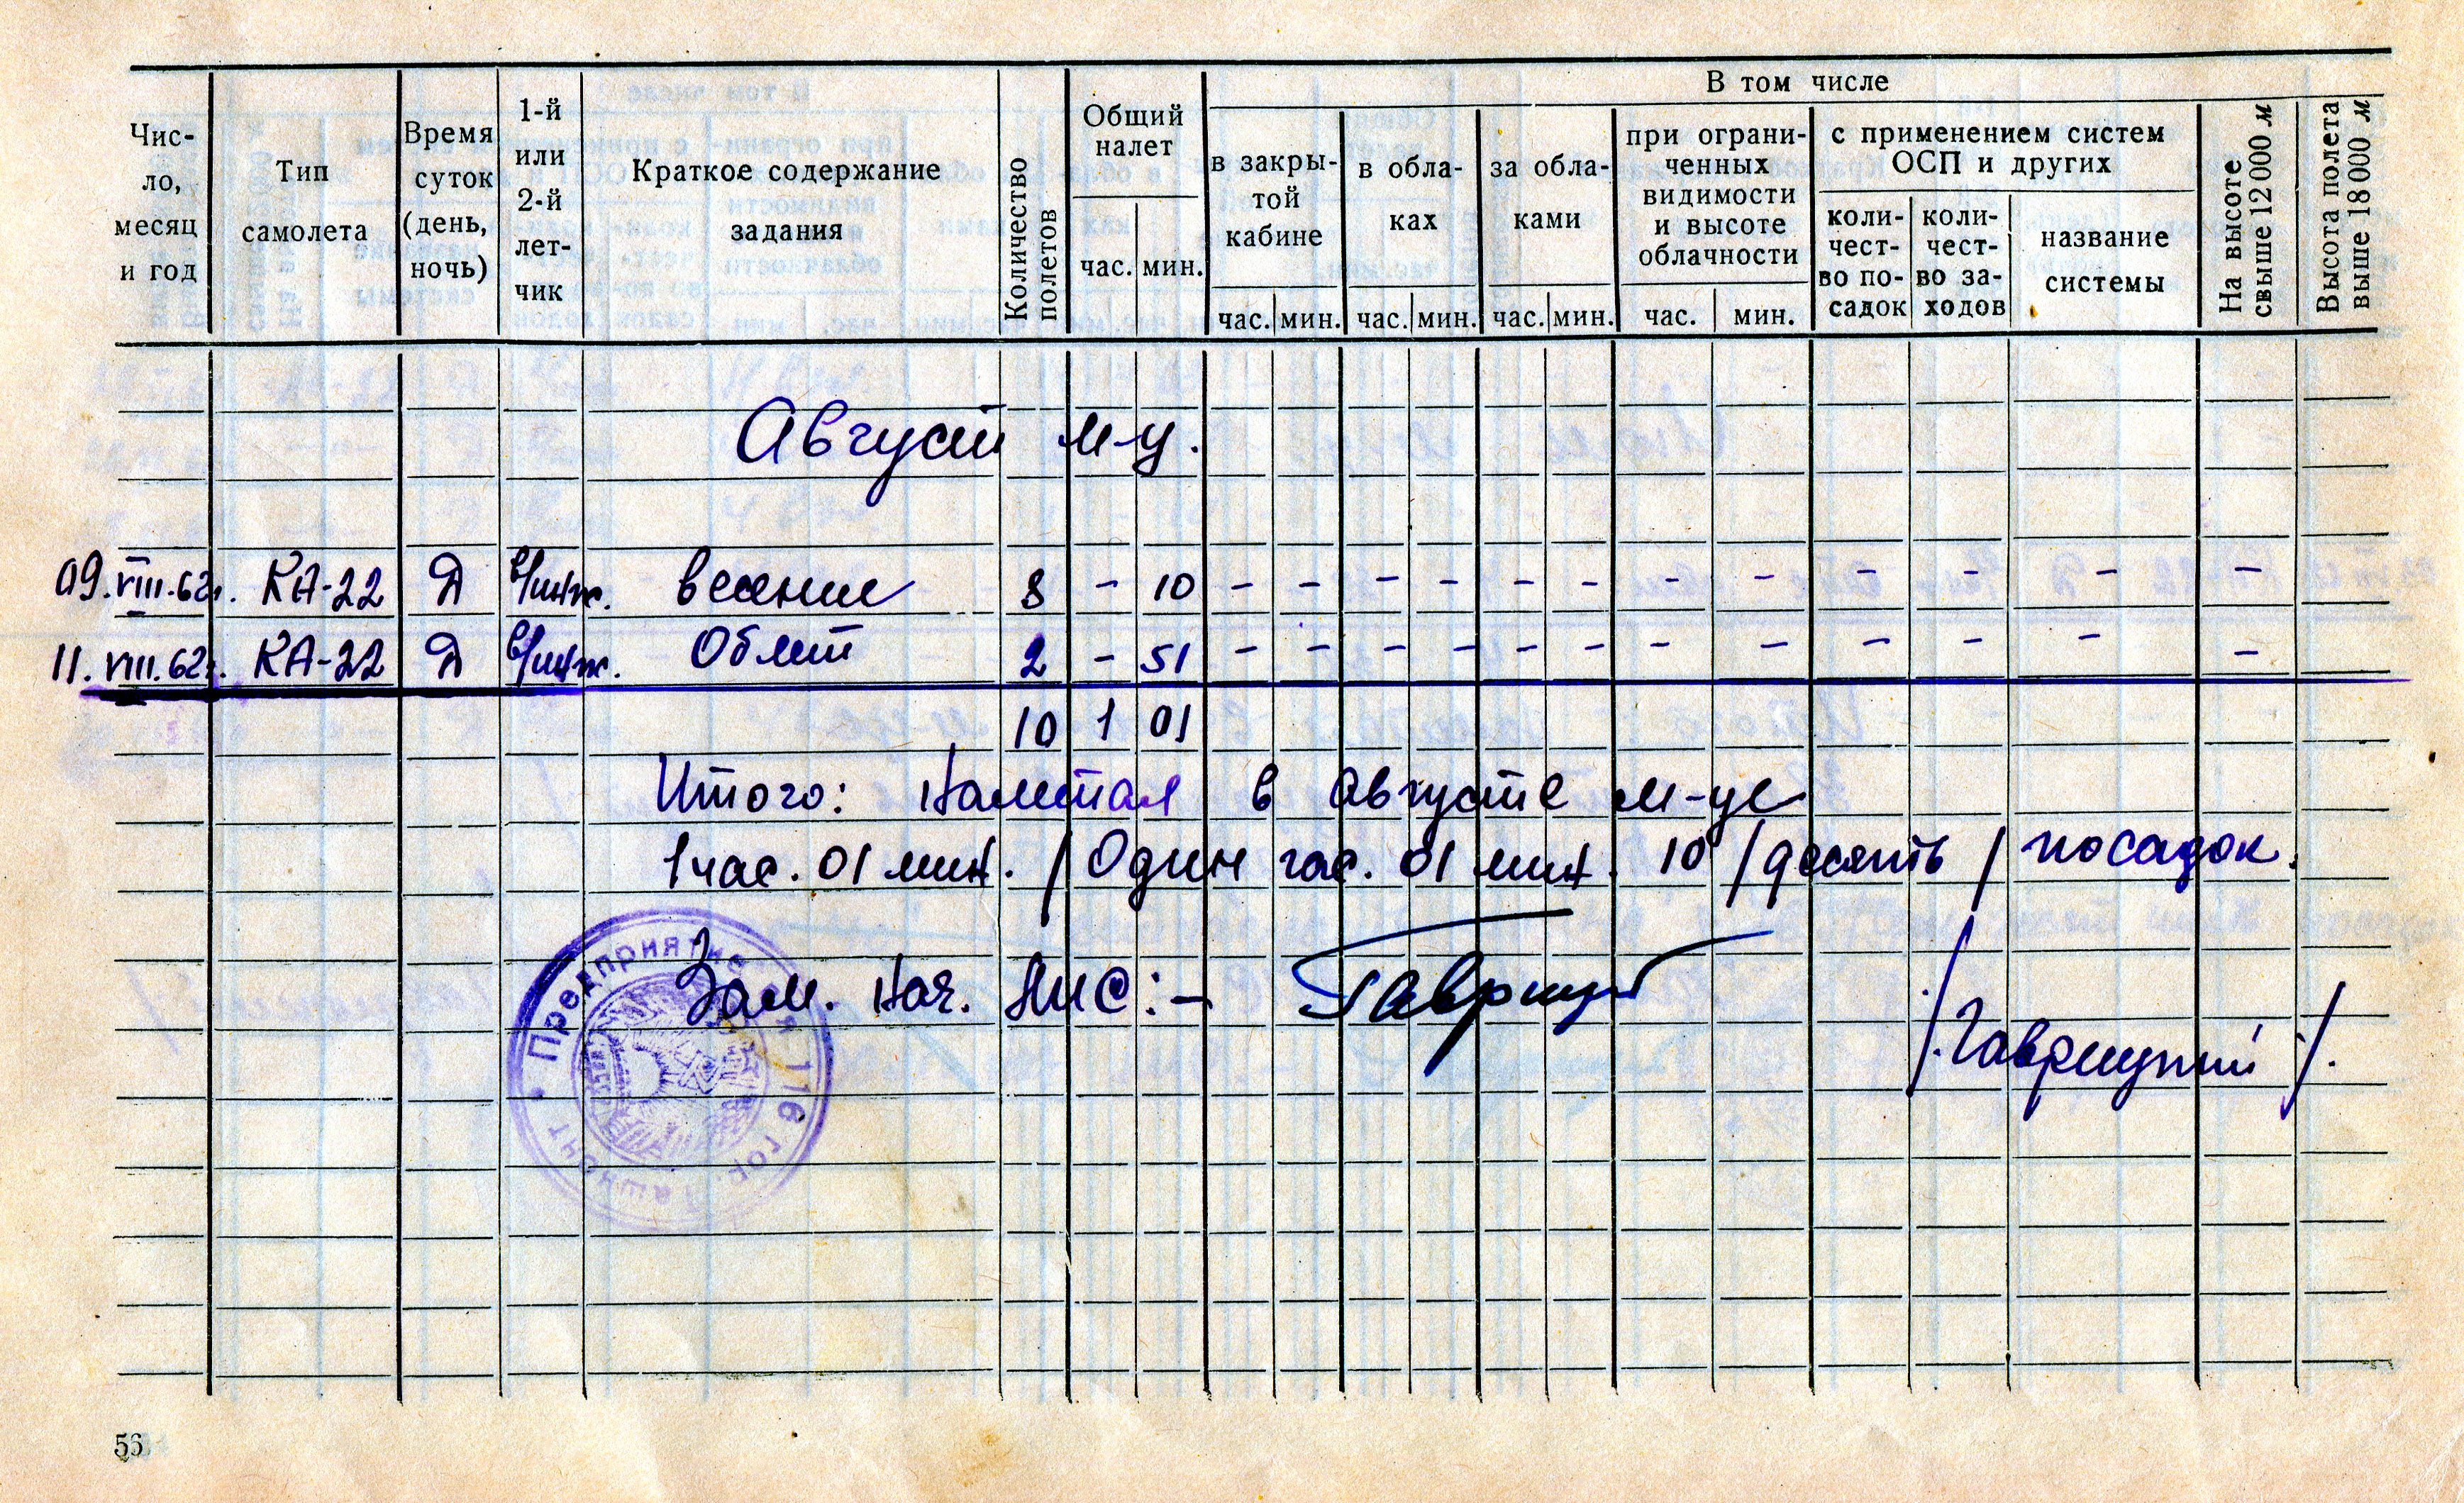 В том числе
Чис-
ло,
месяц
и год
Тип
самолета
Время
суток
(день,
ночь)
1-й
или
2-й
лет-
чик
Краткое содержание
задания
Количество
полетов
Общий
налет
час. мин.
в закры-
той
кабине
час. мин.
в обла-
ках
час. мин.
за обла-
ками
час. мин.
при ограни-
ченных
видимости
и высоте
облачности
час. мин.
с применением систем
ОСП и других
коли-
чест-
во по-
садок
коли-
чест-
во за-
ходов
название
системы
На высоте
свыше 12 000 м
Высота полета
выше 18 000 м
Август м-ц.
09.VIII.62г. КА-22 Д б/инж. висение 8 - 10 - - - - - - - - - - - -
11.VIII.62г. КА-22 Д б/инж. Облёт 2 - 51 - - - - - - - - - - - -
10 1 01
Итого: Налетал в августе м-це
1 час. 01 мин. / Один час. 01 мин. 10 /десять/ посадок.
Зам. Нач. ЛИС:-
/.Гаврицкий/.
Предприятие п/я 116 гор. Ташкент
56